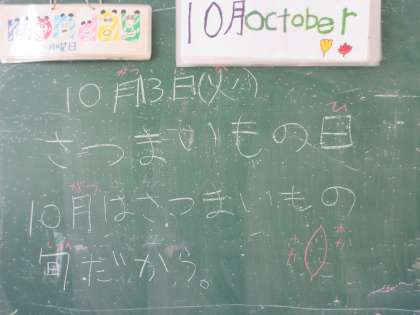 月曜日
10月 October
10月13日(火)
さつまいもの日
10月はさつまいもの
旬だから。
ホカ ホカ